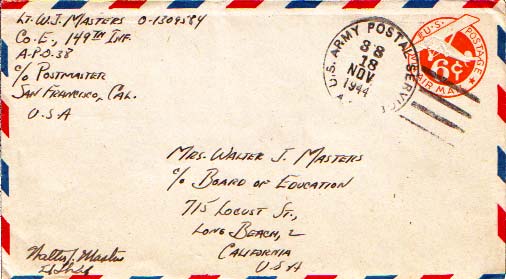 Lt. W.J. Masters O-1309584
Co-E, 149th Inf.
A.P.O-38
c/o Postmaster
San Francisco, Cal.
U.S.A
U.S. ARMY POSTAL SERVICE
38
18
NOV
1944
U.S. POSTAGE
6¢
AIR MAIL
Mrs. Walter J. Masters
c/o Board of Education
715 Locust St.,
Long Beach, 2
California
U.S.A
Walter J. Masters